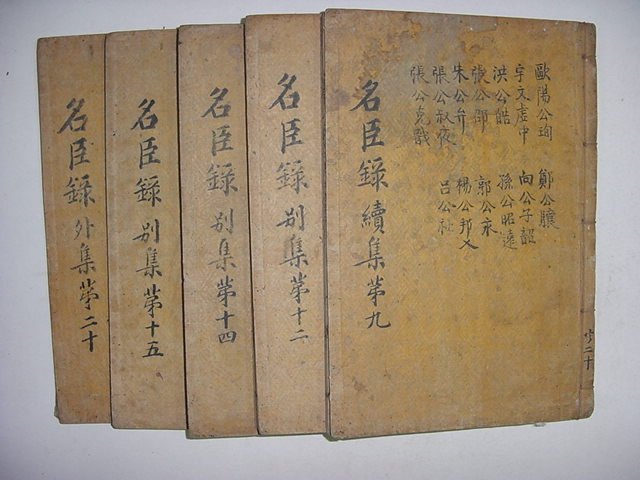 歐陽公珣 鄭公驤
宇文虛中 向公子韶
洪公皓 孫公昭遠
張公邵 郭公永
朱公弁 楊公邦乂
張公叔夜 呂公祉
張公克戩
名臣錄 續集第九
共二十
名臣錄 別集第十二
名臣錄 別集第十四
名臣錄 別集第十五
名臣錄 外集第二十